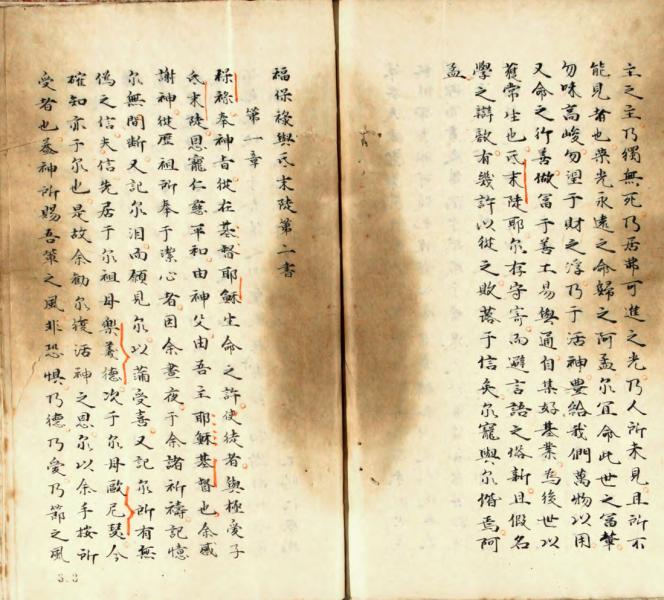 主之主乃獨無死乃居弗可進之光乃人所未見且所不
能見者也樂光永遠之命歸之阿孟尔宜命此世之冨華
勿味高峻勿望于財之浮乃于活神豊給我們萬物以用
又命之行善做冨于善工易與通自集好基業為後世以
獲常生也氐末陡耶尔存守寄而避言語之俗新且假名
學之辯敵有幾許以從之敗落于信矣尔寵與尔偕焉阿
孟
福保祿與氐末陡第二書
第一章
祿奉神旨從在基督耶穌生命之許使徒者與極愛子
氐末陡恩寵仁慈平和由神父由吾主耶穌基督也余感
謝神從歷祖所奉于潔心者因余晝夜于余諸祈禱記憶
尔無間斷又記尔泪而願見尔以蒲受喜又記尔所有無
偽之信夫信先居于尔祖母樂義德次于尔母歐尼瑟今
確知亦于尔也是故余勸尔復活神之恩尔以余手按所
受者也蓋神所賜吾輩之風非恐惧乃德乃愛乃節之風